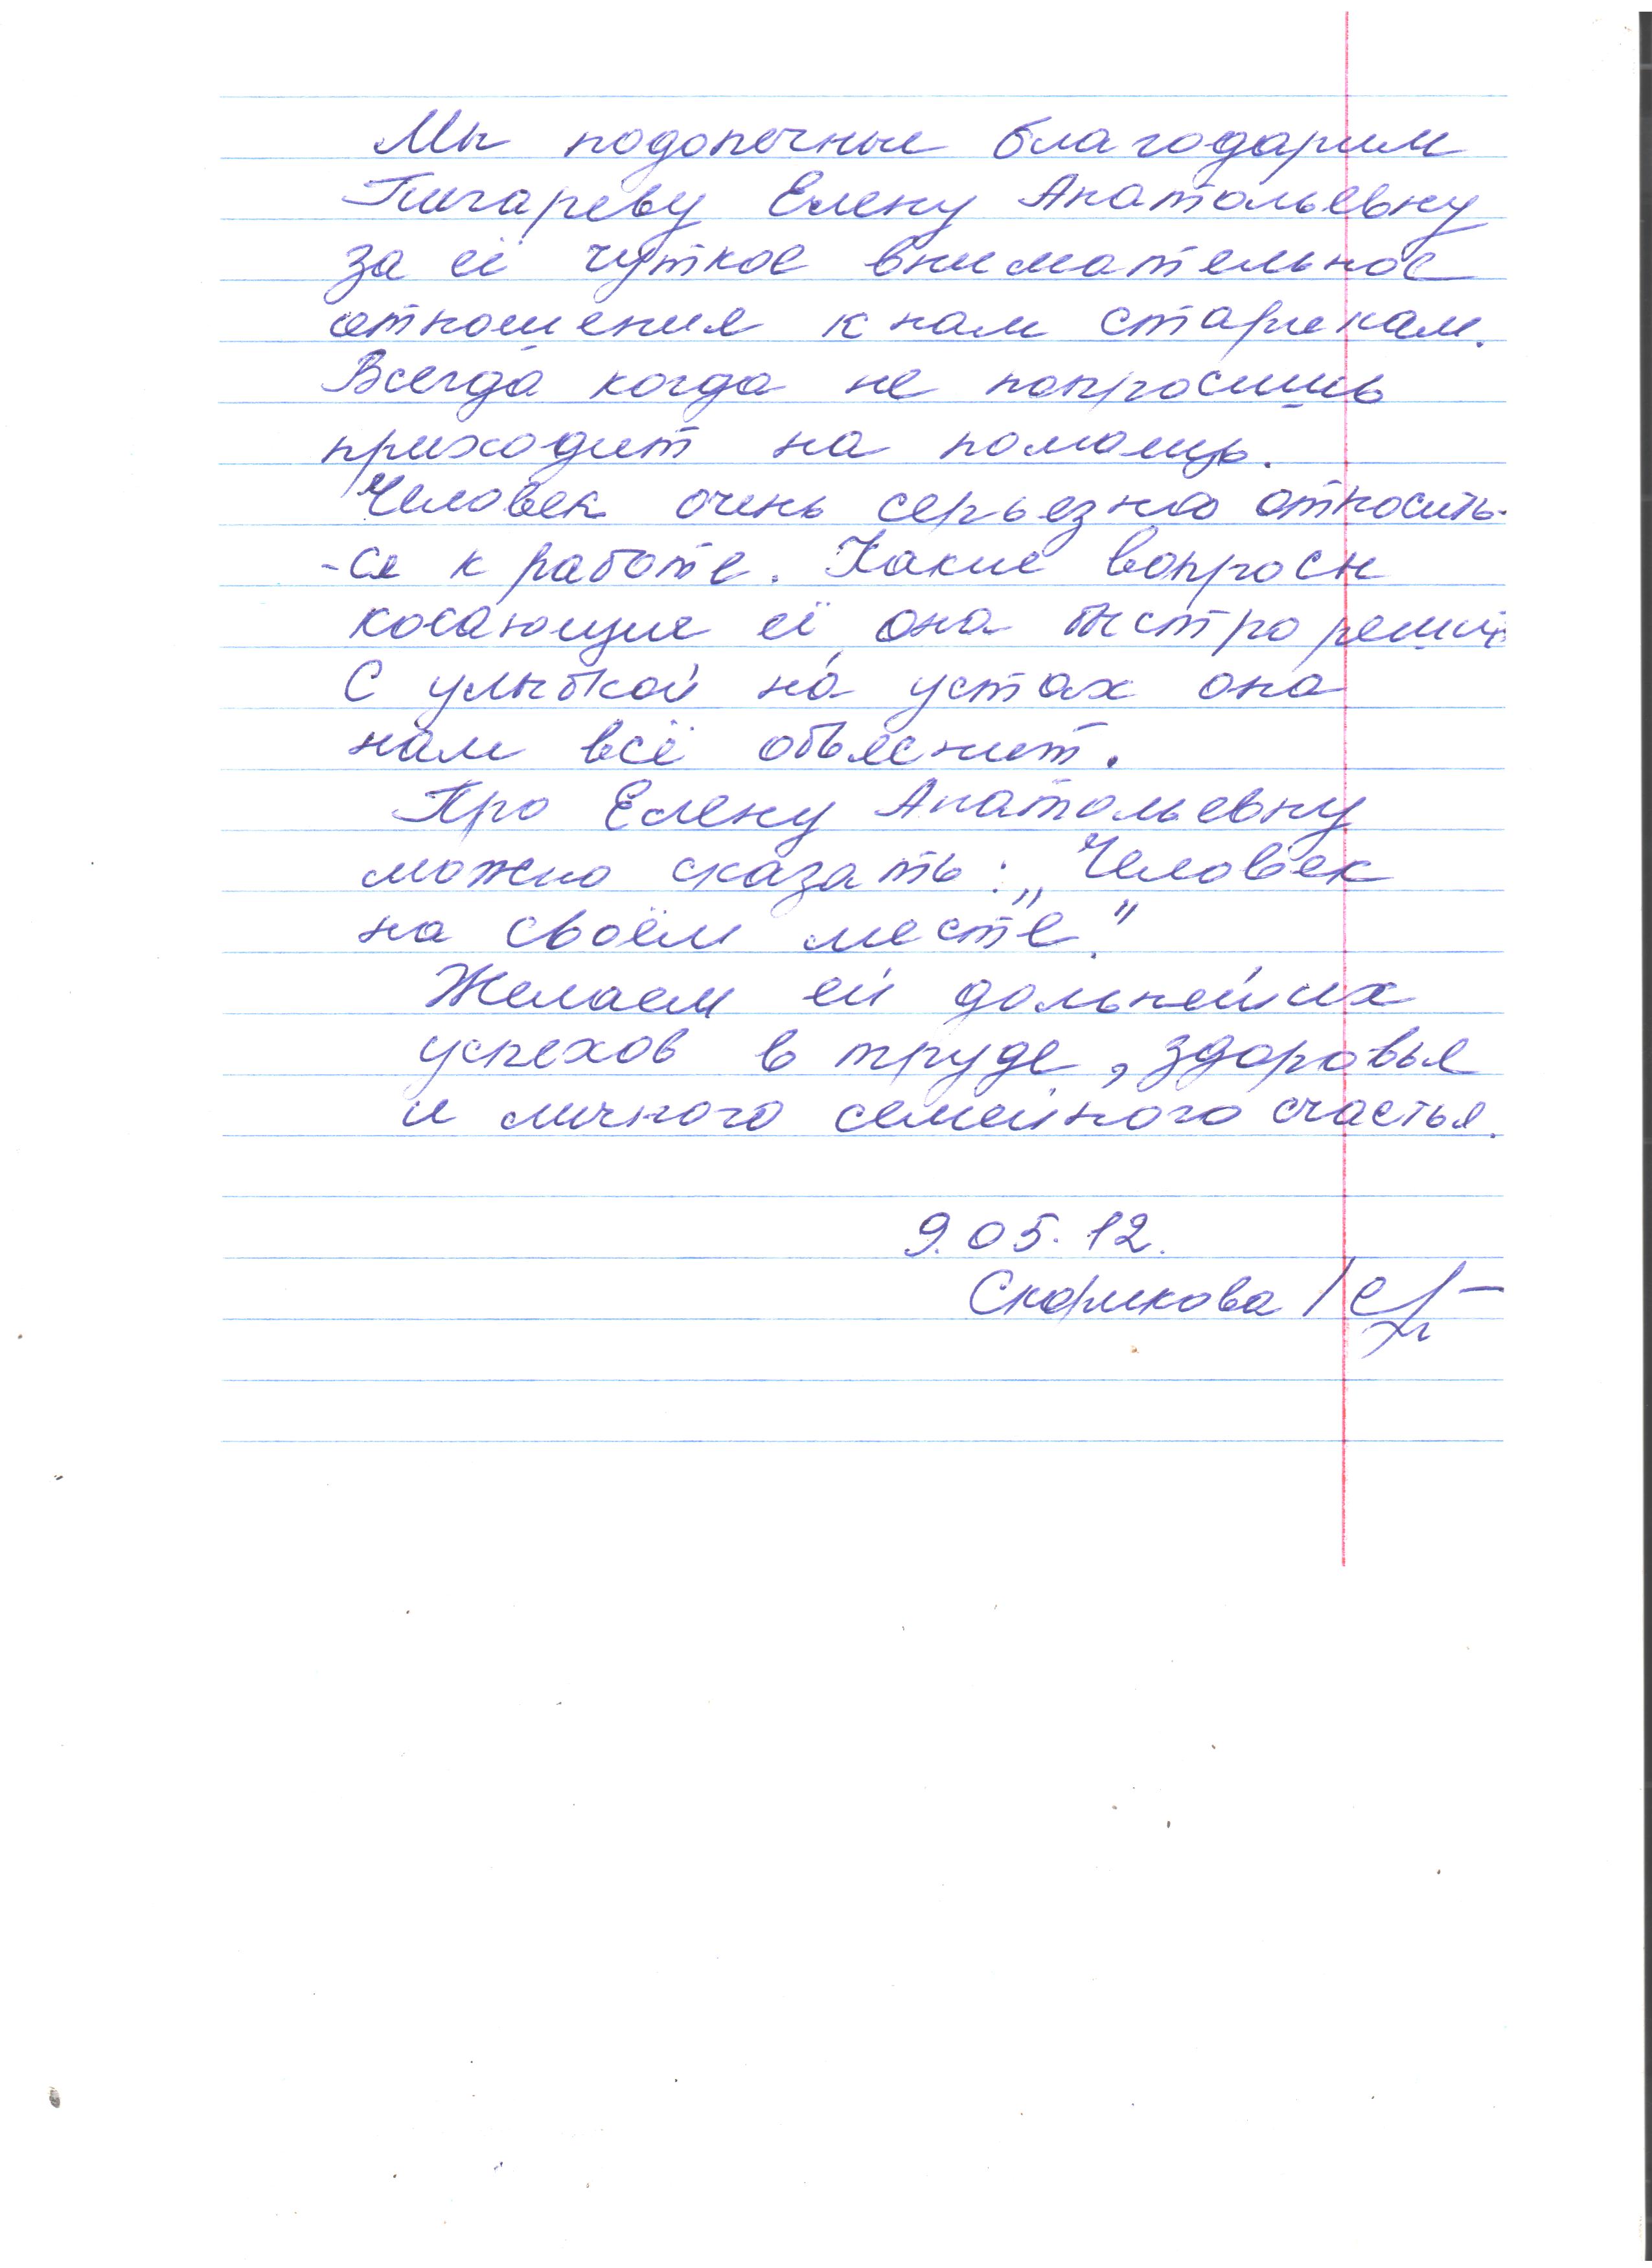 Мы подопечные благодарим
Пигареву Елену Анатольевну
за её чуткое внимательное
отношения к нам старикам.
Всегда когда не попросишь
приходит на помощь.
Человек очень серьезно относить-
-ся к работе. Какие вопросы
косающие её она быстро решит
С улыбкой на устах она
нам всё объяснит.
Про Елену Анатольевну
можно сказать: „Человек
на своём месте."
Желаем ей дольнейших
успехов в труде, здоровья
и личного семейного счастья.
9.05.12.
Скорикова /